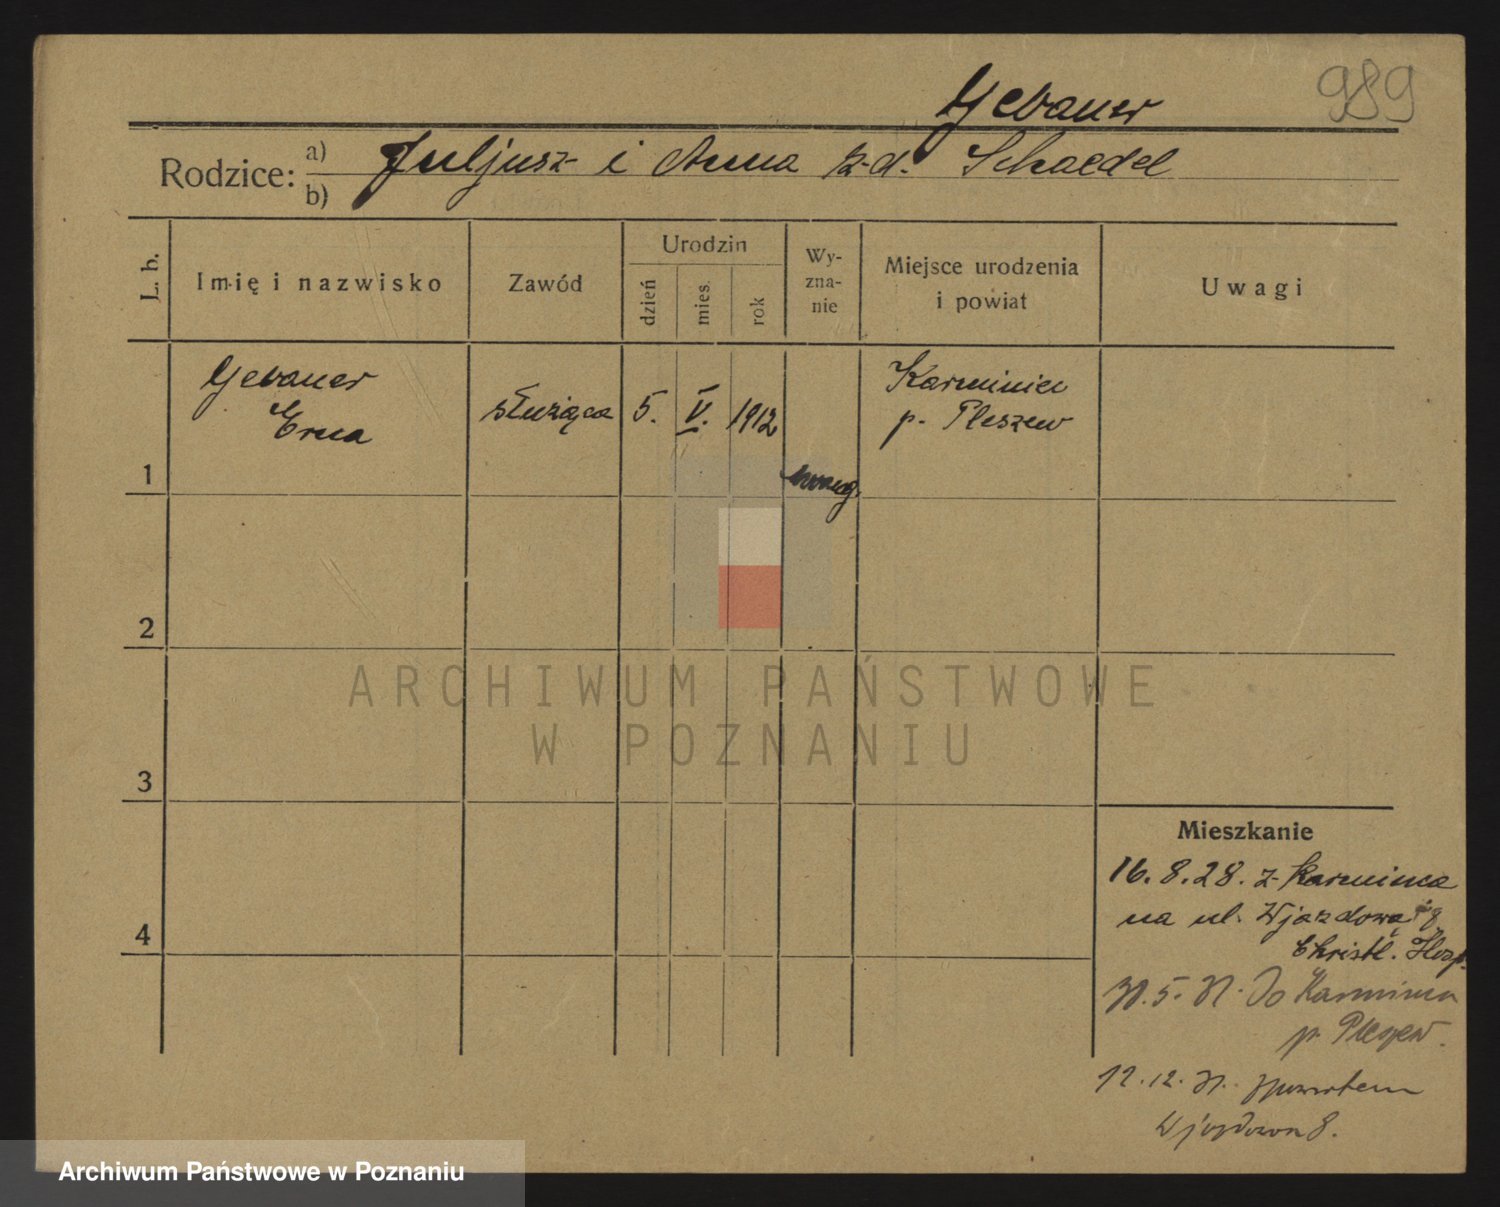 989
Gebauer
Rodzice: a) Juljusz i Anna z d. Schaedel
b)
L. b.
Imię i nazwisko
Zawód
Urodzin
dzień
mies.
rok
Wy-
zna-
nie
Miejsce urodzenia
i powiat
Uwagi
Gebauer
Erna
służąca
5.
V.
1912
ewang.
Karminiec
p. Pleszew
1
2
3
4
ARCHIWUM PAŃSTWOWE
W POZNANIU
Mieszkanie
16.8.28. z Karmińca
na ul. Wjazdowa 8
Christl. Hosp.
30.5.31. Do Karmińca
p. Pleszew.
12.12.31. zpowrotem
Wjazdowa 8.
Archiwum Państwowe w Poznaniu